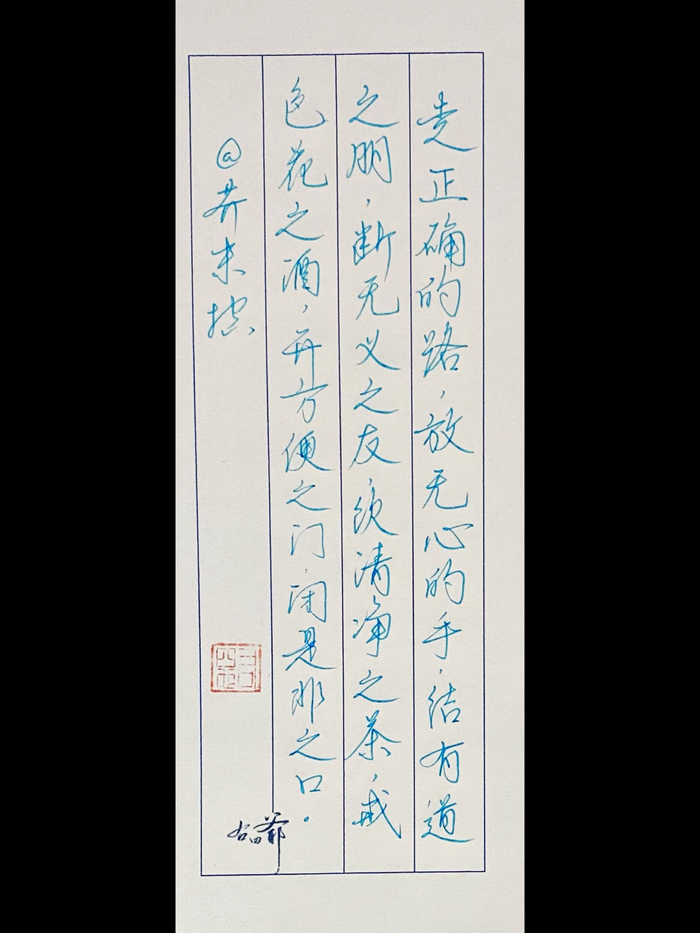 走正确的路，放无心的手，结有道
之朋，断无义之友，饮清净之茶，戒
色花之酒，开方便之门，闭是非之口。
@芥末